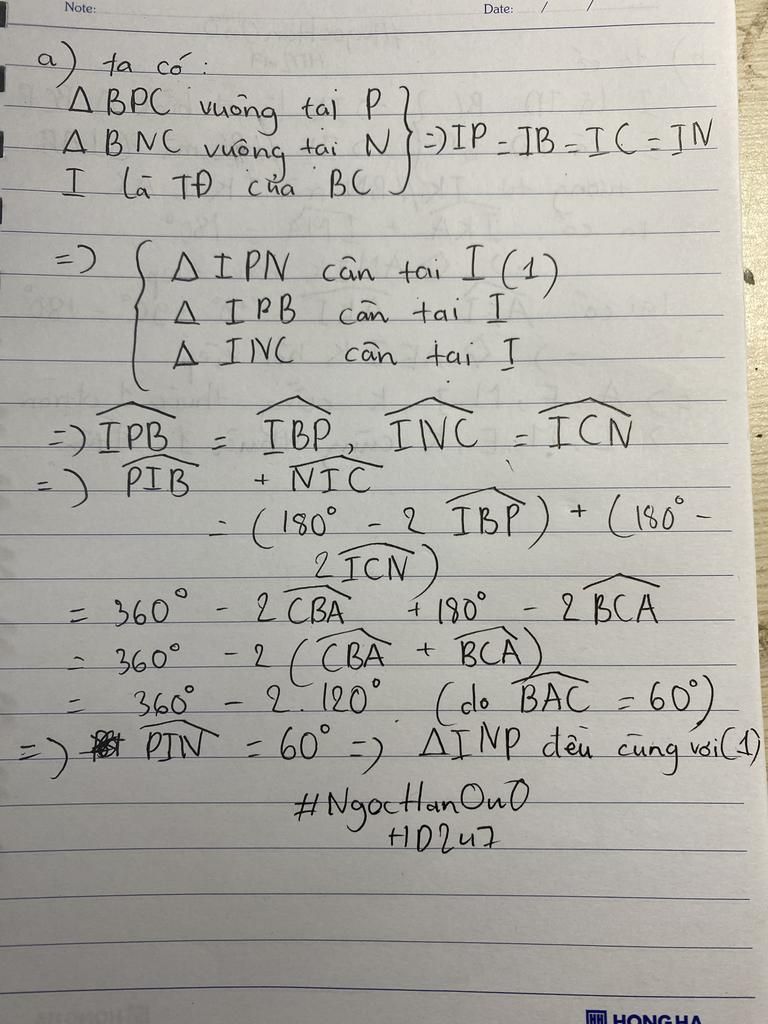 Note:
Date: / /
a) ta có:
Δ BPC vuông tại P
Δ BNC vuông tại N
I là TĐ của BC
=> IP = IB = IC = IN
=> Δ IPN cân tại I (1)
Δ IPB cân tại I
Δ INC cân tại I
=> \widehat{IPB} = \widehat{IBP}, \widehat{INC} = \widehat{ICN}
=> \widehat{PIB} + \widehat{NIC}
= (180° - 2 \widehat{IBP}) + (180° -
2 \widehat{ICN})
= 360° - 2 \widehat{CBA} + 180° - 2 \widehat{BCA}
= 360° - 2 (\widehat{CBA} + \widehat{BCA})
= 360° - 2.120° (do \widehat{BAC} = 60°)
=> \widehat{PIN} = 60° => ΔINP đều cùng với (1)
#NgocHanOuO
HD2u7
HH HONG HA